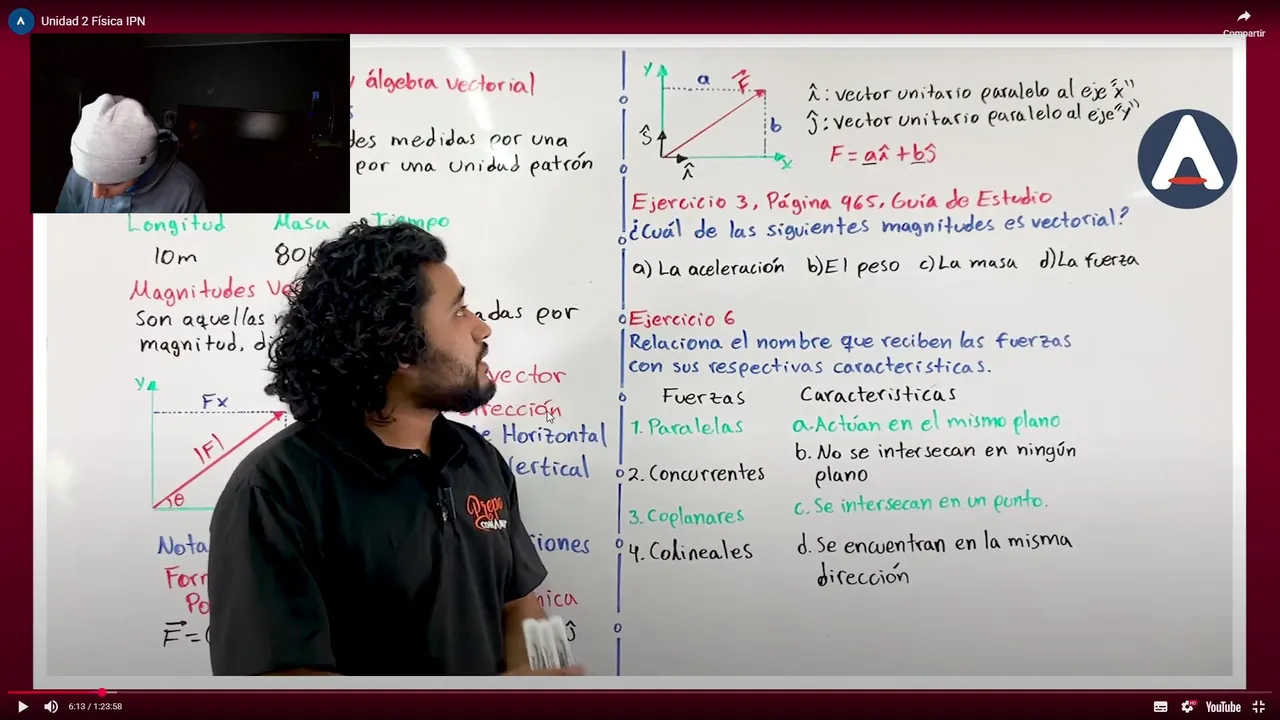 Unidad 2 Física IPN
Compartir
álgebra vectorial
medidas por una
por una unidad patrón
Longitud Masa Tiempo
10m
Magnitudes
Son aquellas por
magnitud,
vector
Dirección
Horizontal
Vertical
y
Fx
|F|
θ
y
a
F
b
ĵ
x
î
î: vector unitario paralelo al eje "x"
ĵ: vector unitario paralelo al eje "y"
F = aî + bĵ
Ejercicio 3, Página 965, Guía de Estudio
¿Cuál de las siguientes magnitudes es vectorial?
a) La aceleración b) El peso c) La masa d) La fuerza
Ejercicio 6
Relaciona el nombre que reciben las fuerzas
con sus respectivas características.
Fuerzas Caracteristicas
1. Paralelas a. Actúan en el mismo plano
b. No se intersecan en ningún
plano
2. Concurrentes
3. Coplanares c. Se intersecan en un punto.
4. Colineales d. Se encuentran en la misma
dirección
Prepa
6:13 / 1:23:58
YouTube